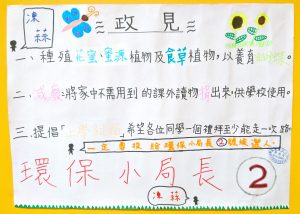 凍蒜
政見
一、種殖花蜜、蜜源植物及食草植物，以養育
二、感應：將家中不需用到的課外讀物捐出來，供學校使用。
三、提倡「」希望各位同學一個禮拜至少能走一次路
一定要投給環保小局長②號候選人
環保小局長
②
凍蒜